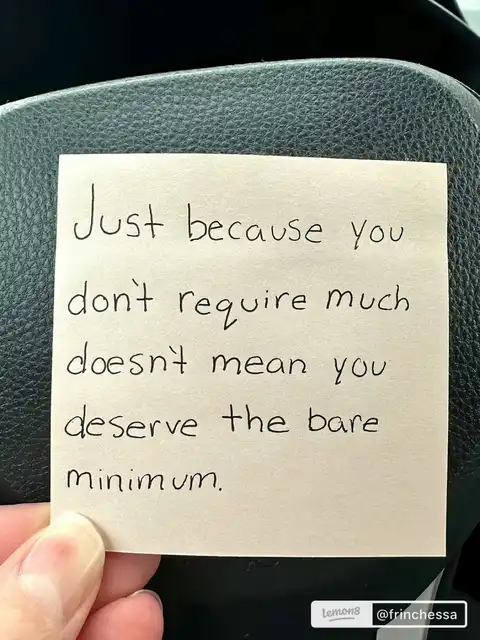 Just because you
don't require much
doesn't mean you
deserve the bare
minimum.
lemon8 @frinchessa